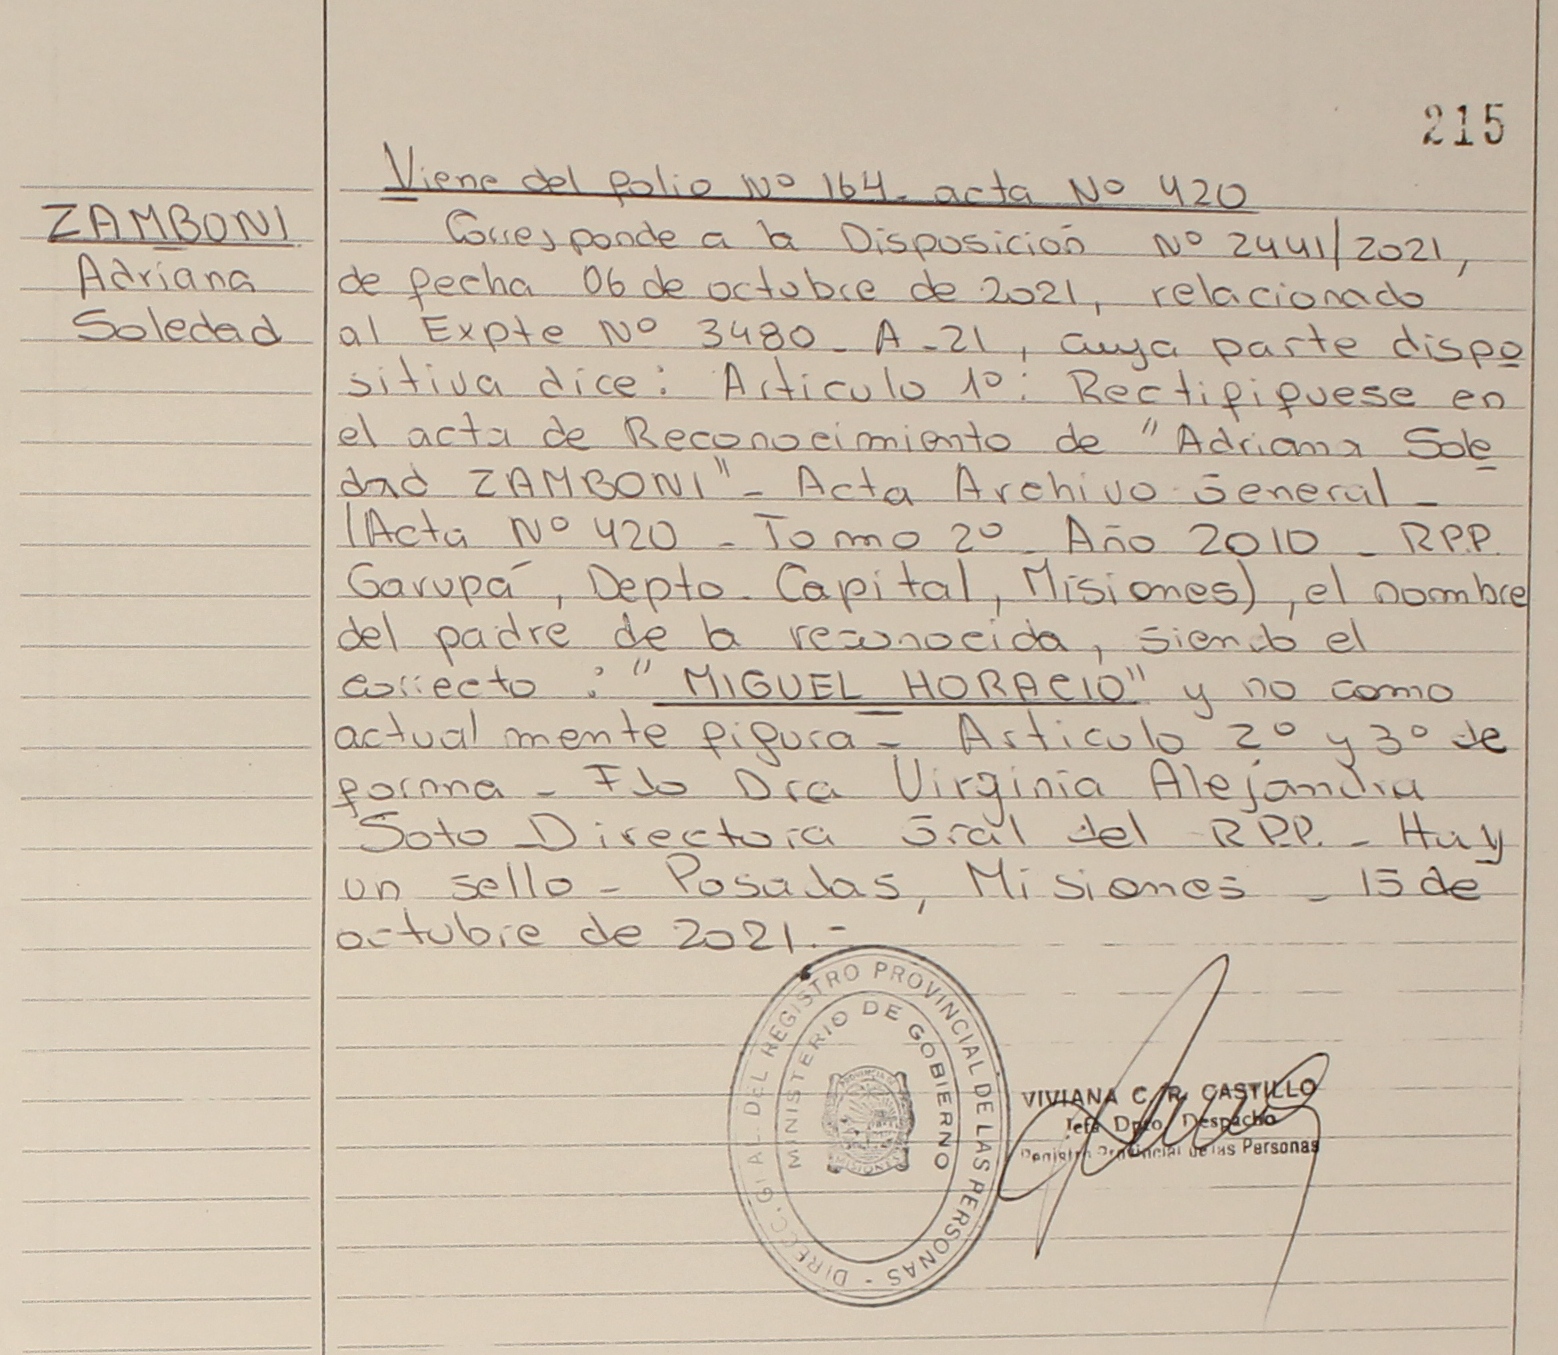 215
Viene del folio Nº 164 - acta Nº 420
ZAMBONI
Adriana
Soledad
Corresponde a la Disposición Nº 2441/2021,
de fecha 06 de octubre de 2021, relacionado
al Expte Nº 3480 - A - 21, cuya parte dispo
sitiva dice: Articulo 1º: Rectifiquese en
el acta de Reconocimiento de "Adriana Sole
dad ZAMBONI" - Acta Archivo General -
(Acta Nº 420 - Tomo 2º - Año 2010 - R.P.P.
Garupá, Depto. Capital, Misiones), el nombre
del padre de la reconocida, siendo el
correcto: "MIGUEL HORACIO" y no como
actualmente figura - Articulo 2º y 3º de
forma - Fdo Dra Virginia Alejandra
Soto - Directora Gral del R.P.P. - Hay
un sello - Posadas, Misiones - 15 de
octubre de 2021.-
DIRECC. GRAL. DEL REGISTRO PROVINCIAL DE LAS PERSONAS -
MINISTERIO DE GOBIERNO
PROVINCIA DE
MISIONES
VIVIANA C. R. CASTILLO
Jefa Dpto. Despacho
Registro Provincial de las Personas